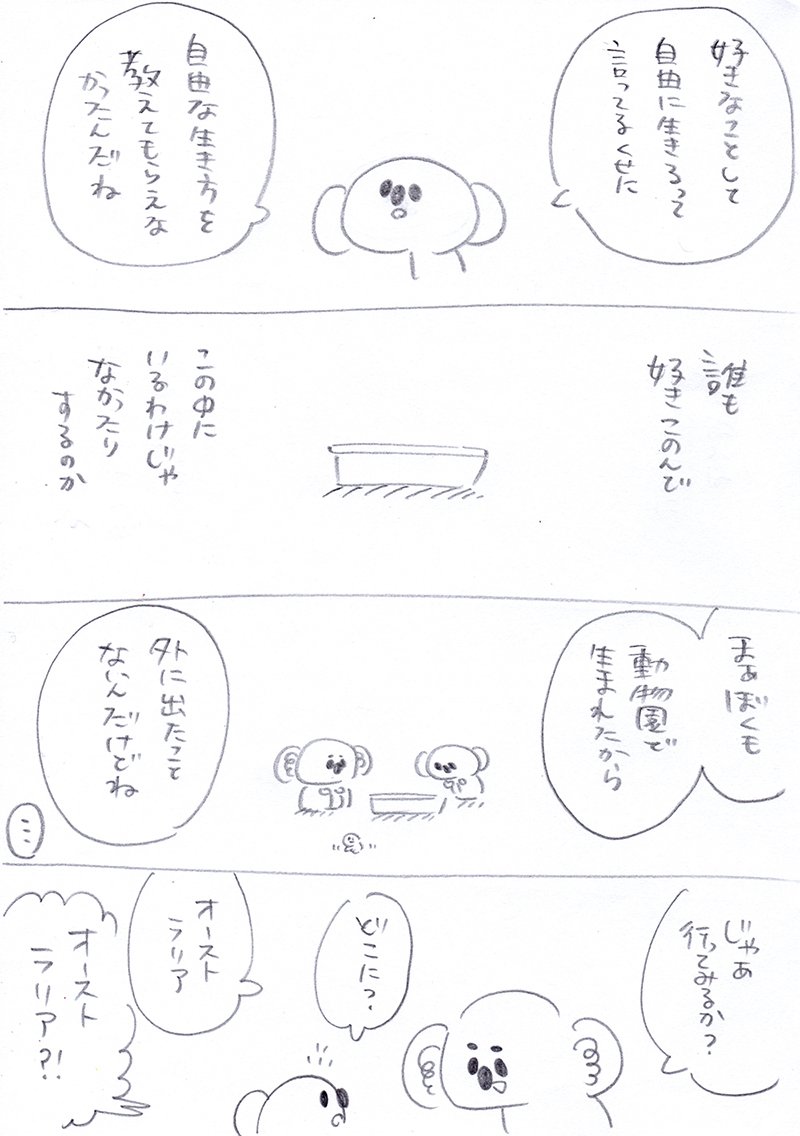 好きなことして
自由に生きるって
言ってるくせに
自由な生き方を
教えてもらえな
かったんだね
誰も
好きこのんで
この中に
いるわけじゃ
なかったり
するのか
まぁぼくも
動物園で
生まれたから
外に出たこと
ないんだけどね
…
じゃあ
行ってみるか？
どこに？
オースト
ラリア
オースト
ラリア？！